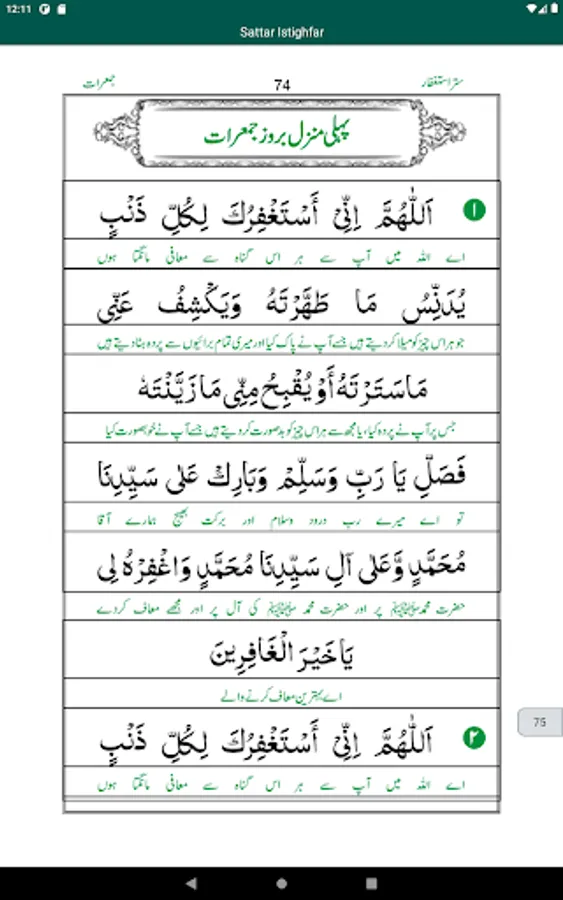 12:11
Sattar Istighfar
ستر استغفار 74 جمعرات
پہلی منزل بروز جمعرات
۱ اَللّٰهُمَّ اِنِّیْ أَسْتَغْفِرُكَ لِكُلِّ ذَنْبٍ
اے اللہ میں آپ سے ہر اس گناہ سے معافی مانگتا ہوں
يُدَنِّسُ مَا طَهَّرْتَهُ وَيَكْشِفُ عَنِّی
جو ہر اس چیز کو میلا کر دیتے ہیں جسے آپ نے پاک کیا اور میری تمام برائیوں سے پردہ ہٹا دیتے ہیں
مَا سَتَرْتَهُ أَوْ يُقْبِحُ مِنِّی مَا زَيَّنْتَهٗ
جس پر آپ نے پردہ کیا، یا مجھ سے ہر اس چیز کو بدصورت کر دیتے ہیں جسے آپ نے خوبصورت کیا
فَصَلِّ يَا رَبِّ وَسَلِّمْ وَبَارِكْ عَلٰی سَيِّدِنَا
تو اے میرے رب درود وسلام اور برکت بھیج ہمارے آقا
مُحَمَّدٍ وَّعَلٰی آلِ سَيِّدِنَا مُحَمَّدٍ وَاغْفِرْهُ لِی
حضرت محمد ﷺ پر اور حضرت محمد ﷺ کی آل پر اور مجھے معاف کردے
يَا خَيْرَ الْغَافِرِينَ
اے بہترین معاف کرنے والے
75
۲ اَللّٰهُمَّ اِنِّیْ أَسْتَغْفِرُكَ لِكُلِّ ذَنْبٍ
اے اللہ میں آپ سے ہر اس گناہ سے معافی مانگتا ہوں